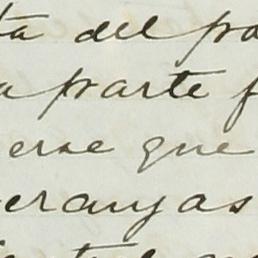 ta del po
a parte f
erse que
eranyas